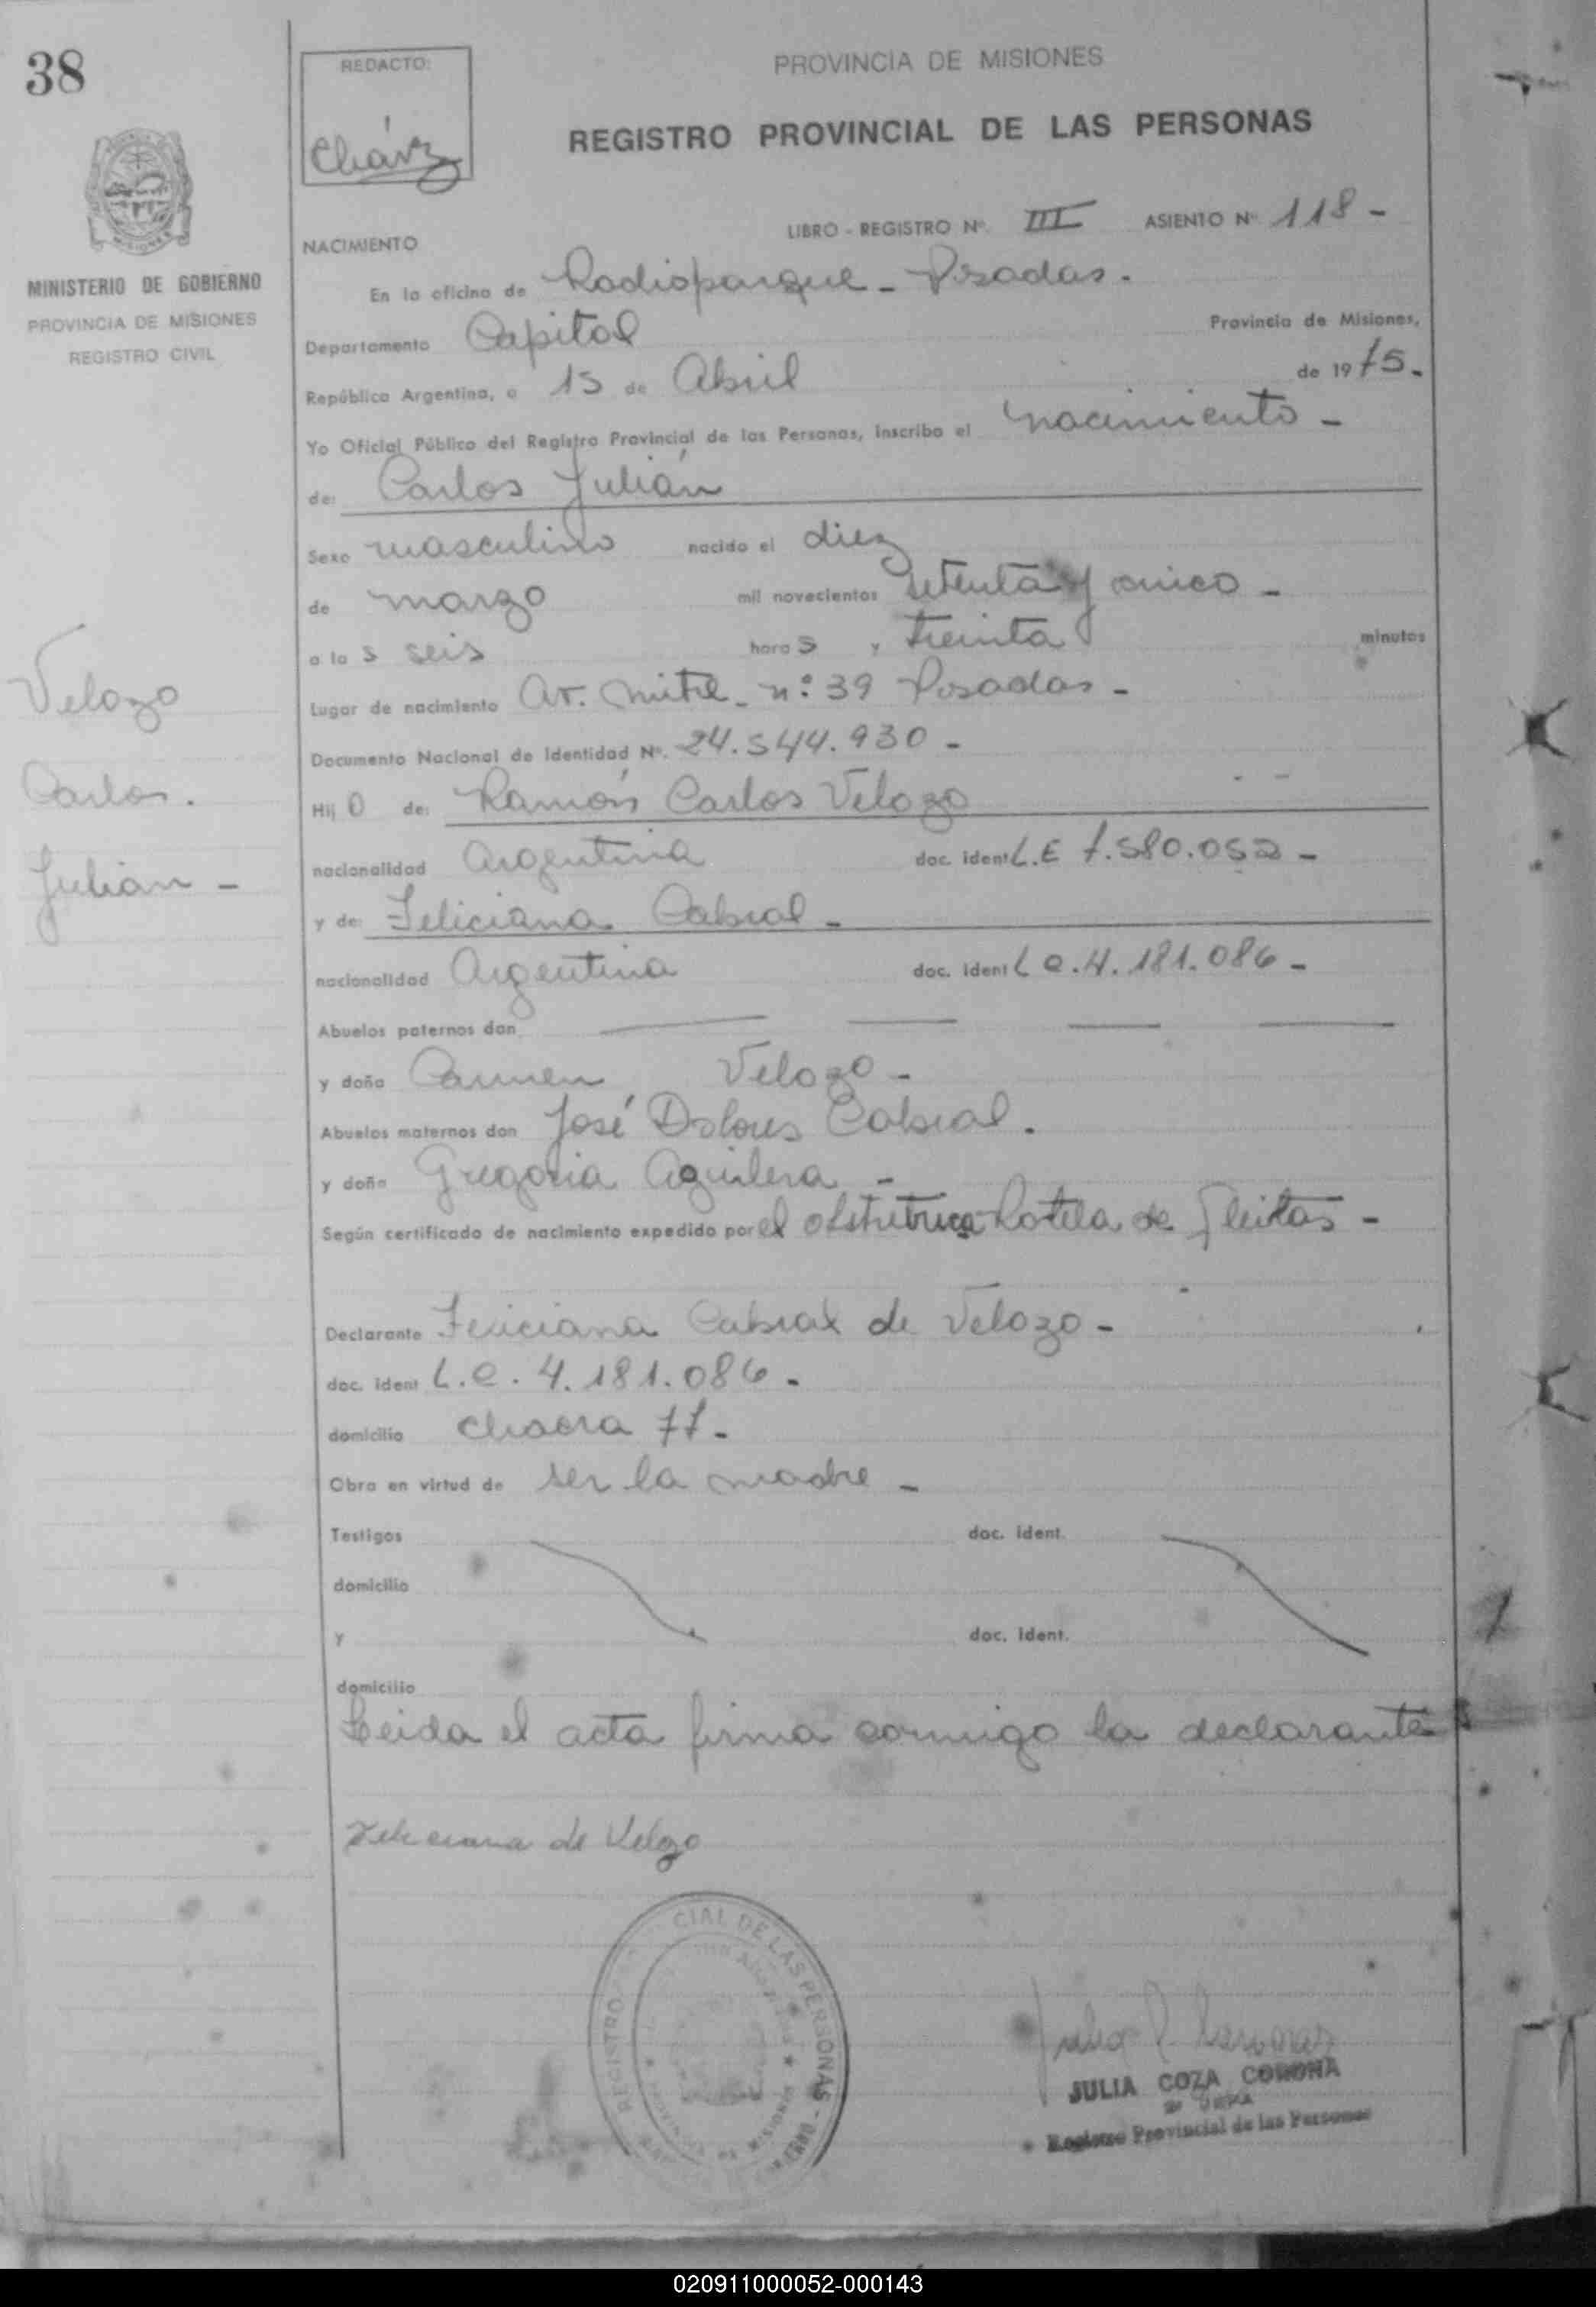 38
REDACTO:
Cháv́z
PROVINCIA DE MISIONES
REGISTRO PROVINCIAL DE LAS PERSONAS
MINISTERIO DE GOBIERNO
PROVINCIA DE MISIONES
REGISTRO CIVIL
LIBRO - REGISTRO Nº. III ASIENTO Nº 118 -
NACIMIENTO
En la oficina de Radioparque - Posadas.
Departamento Capital Provincia de Misiones,
República Argentina, a 15 de Abril de 1975.
Yo Oficial Público del Registro Provincial de las Personas, inscribo el nacimiento -
de: Carlos Julián
Sexo masculino nacido el diez
de marzo mil novecientos setenta y cinco -
a las seis horas y treinta minutos
Lugar de nacimiento Av. Mitre - nº 39 Posadas -
Documento Nacional de Identidad Nº. 24.544.930 -
Hijo de: Ramón Carlos Velozo
nacionalidad Argentina doc. ident L.E 7.580.052 -
y de: Feliciana Cabral -
nacionalidad Argentina doc. ident L C. 4. 181. 086 -
Abuelos paternos don
y doña Carmen Velozo -
Abuelos maternos don José Dolores Cabral.
y doña Gregoria Aguilera -
Según certificado de nacimiento expedido por el obstetrica Rotela de Fleitas -
Declarante Feliciana Cabral de Velozo -
doc. ident L.C. 4. 181. 086 -
domicilio chacra 77 -
Obra en virtud de ser la madre -
Testigos doc. ident.
domicilio
y doc. ident.
domicilio
Leida el acta firma conmigo la declarante
Feliciana de Velozo
Velozo
Carlos.
Julian -
REGISTRO CIAL DE LAS PERSONAS
MISIONES
JULIA COZA CORONA
Registro Provincial de las Personas
020911000052-000143